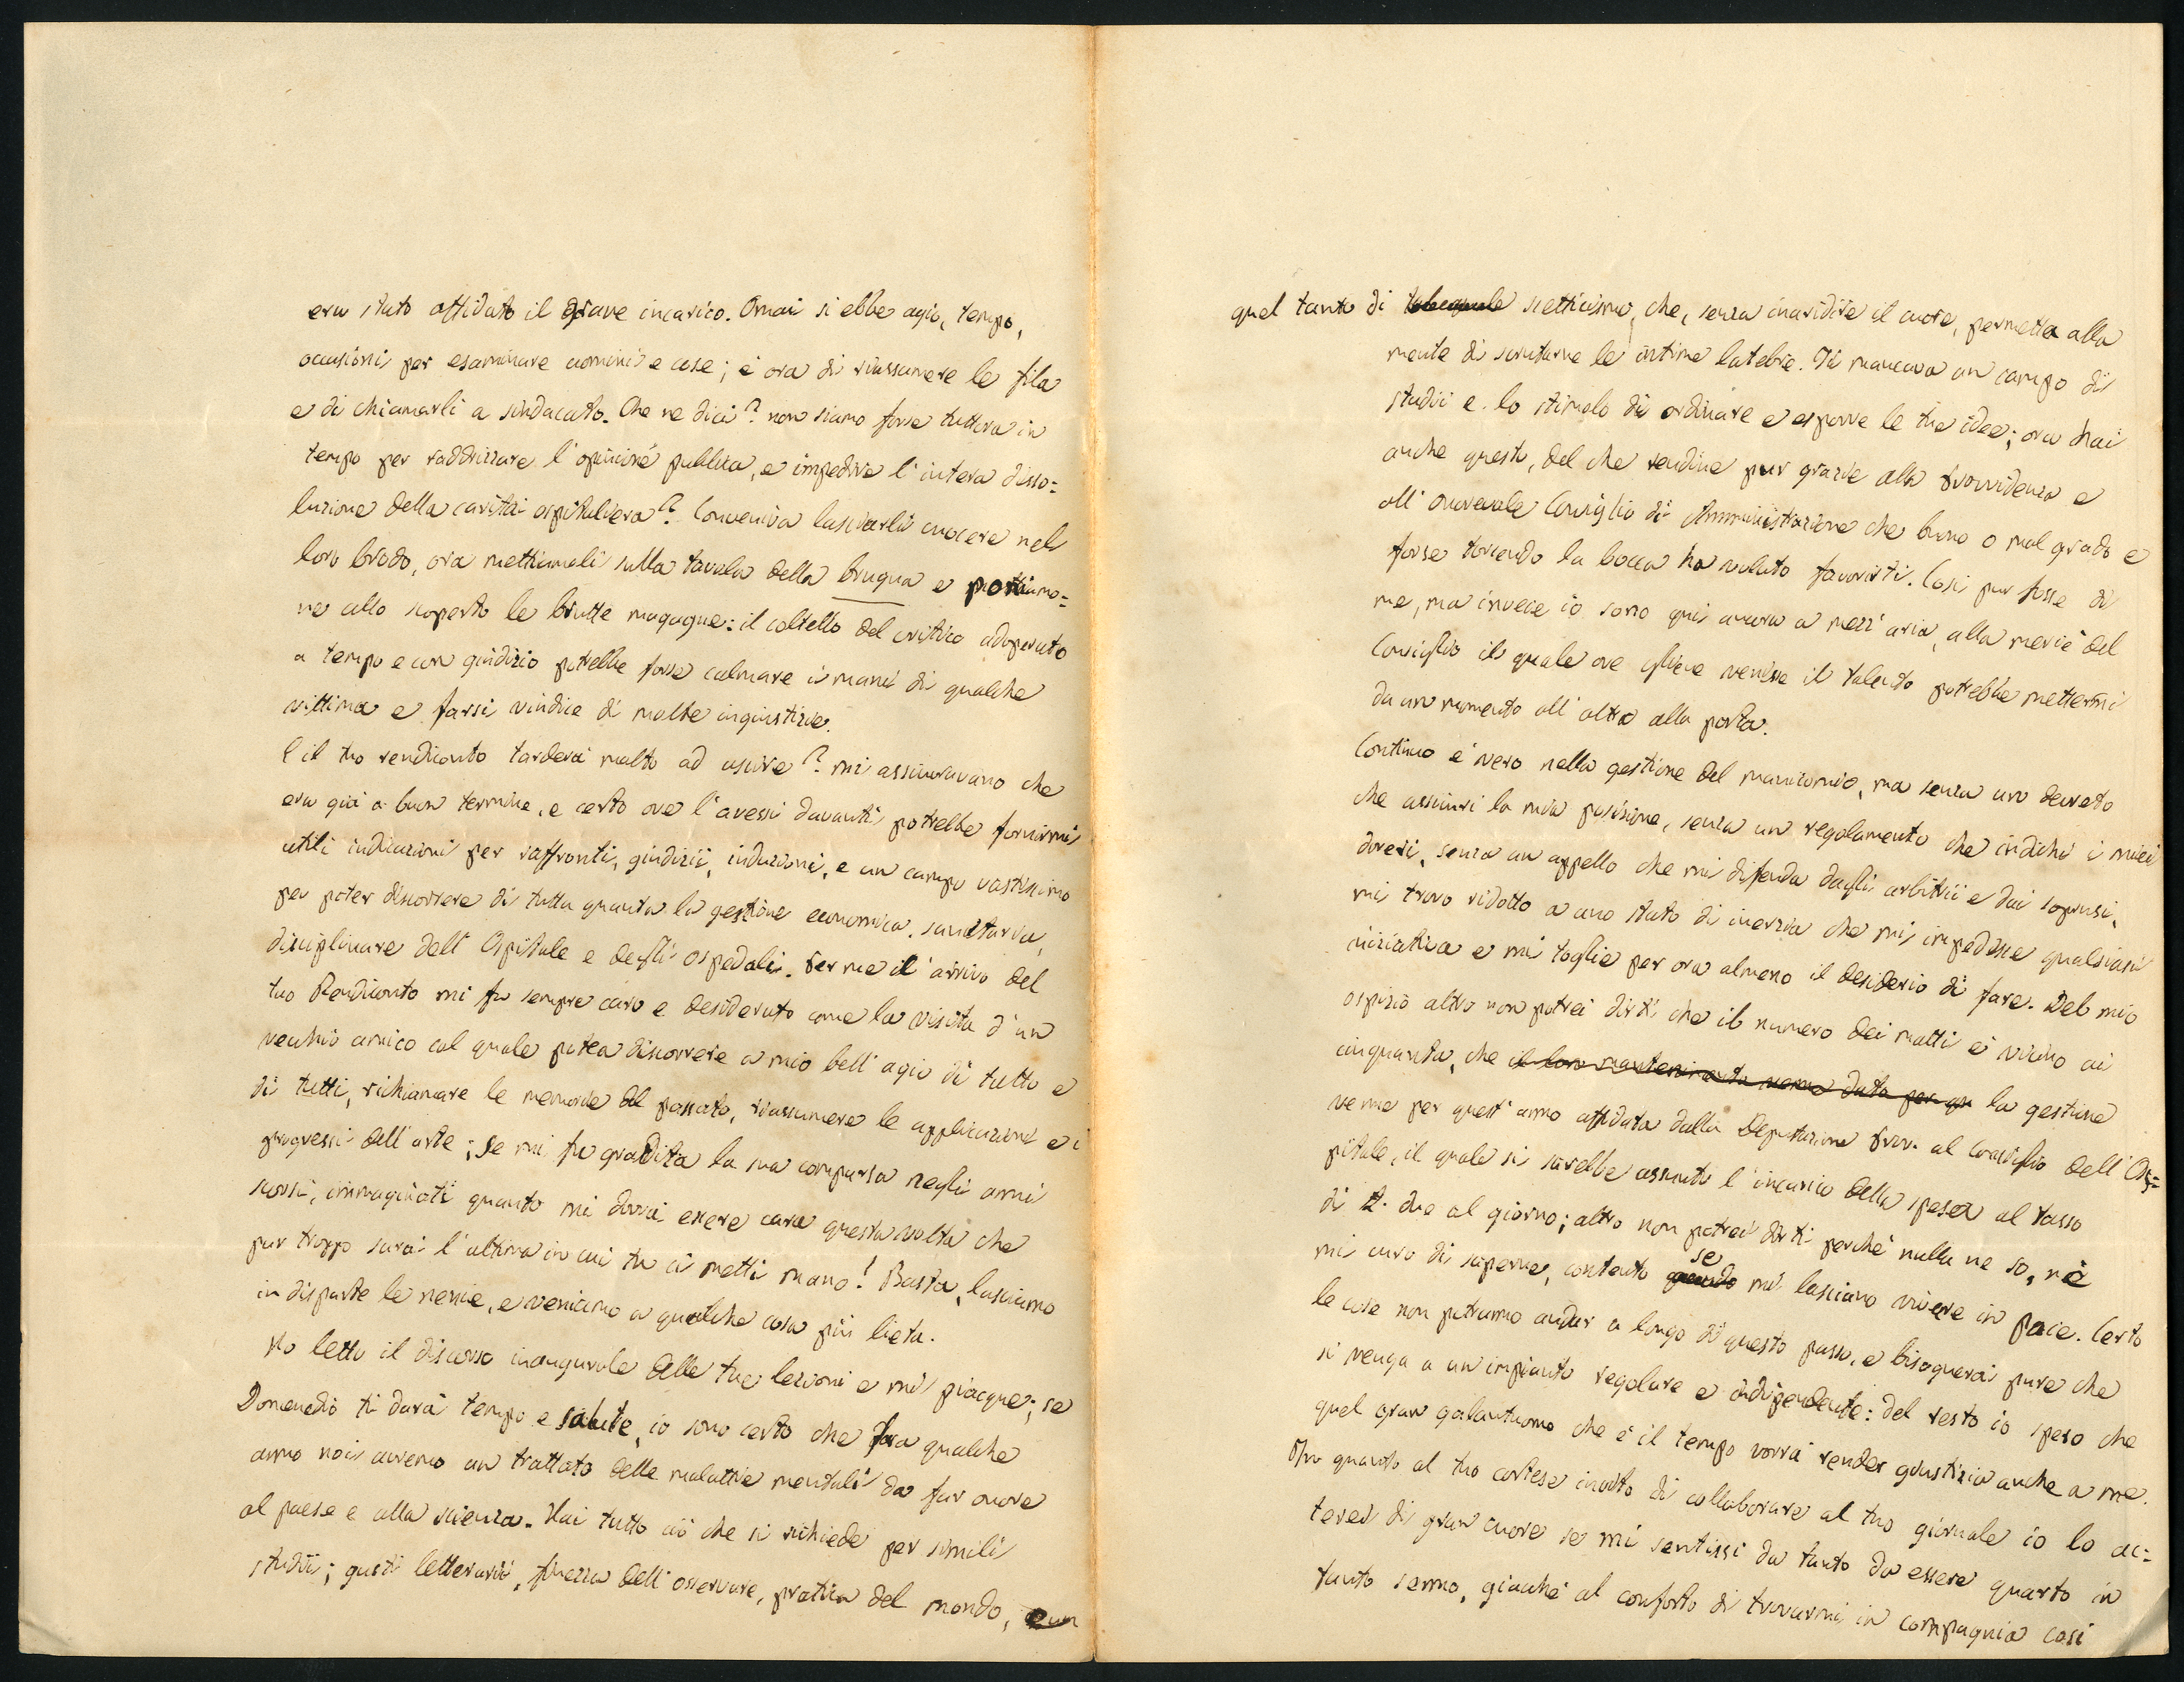 era stato affidato il grave incarico. Omai si ebbe agio, tempo,
occasioni per esaminare uomini e cose; è ora di riassumere le fila
e di chiamarli a sindacato. Che ne dici? non siamo forse tuttora in
tempo per raddrizzare l'opinione pubblica, e impedire l'intera disso=
luzione della carità ospitaliera? Conveniva lasciarli cuocere nel
loro brodo, ora mettiamoli sulla tavola della brugna e portiamo=
ne allo scoperto le brutte magagne: il coltello del critico adoperato
a tempo e con giudizio potrebbe forse calmare i mani di qualche
vittima e farsi vindice di molte ingiustizie.
E il tuo rendiconto tarderà molto ad uscire? mi assicuravano che
era già a buon termine, e certo ove l'avessi davanti potrebbe fornirmi
utili indicazioni per raffronti, giudizii, induzioni, e un campo vastissimo
per poter discorrere di tutta quanta la gestione economica, sanitaria,
disciplinare dell'Ospitale e degli ospedali. Per me il arrivo del
tuo Rendiconto mi fu sempre caro e desiderato come la visita d'un
vecchio amico col quale potea discorrere a mio bell'agio di tutto e
di tutti, richiamare le memorie del passato, riassumere le applicazioni e i
progressi dell'arte; se mi fu gradita la sua comparsa negli anni
scorsi, immaginati quanto mi dovrà essere cara questa volta che
pur troppo sarà l'ultima in cui tu ci metti mano! Basta, lasciamo
in disparte le nenie, e veniamo a qualche cosa più lieta.
Ho letto il discorso inaugurale delle tue lezioni e mi piacque; se
Domeneddio ti darà tempo e salute, io sono certo che fra qualche
anno noi avremo un trattato delle malattie mentali da far onore
al paese e alla scienza. Hai tutto ciò che si richiede per simili
studii; gusti letterarii, finezza dell'osservare, pratica del mondo, e un
quel tanto di scetticismo, che, senza inaridire il cuore, permetta alla
mente di scrutarne le intime latebre. Ti mancava un campo di
studii e lo stimolo di ordinare e esporre le tue idee; ora hai
anche questo, del che rendine pur grazie alla Provvidenza e
all'onorevole Consiglio di Amministrazione che buono o mal grado e
forse torcendo la bocca ha voluto favorirti. Così pur fosse di
me, ma invece io sono qui ancora a mezz'aria, alla mercè del
Consiglio il quale ove gliene venisse il talento potrebbe mettermi
da un momento all'altro alla porta.
Continuo è vero nella gestione del manicomio, ma senza un decreto
che assicuri la mia posizione, senza un regolamento che indichi i miei
doveri, senza un appello che mi difenda dagli arbitrii e dai soprusi,
mi trovo ridotto a uno stato di inerzia che mi impedisce qualsiasi
iniziativa e mi toglie per ora almeno il desiderio di fare. Del mio
ospizio altro non potrei dirti che il numero dei matti è vicino ai
cinquanta, che il loro mantenimento venne dato per un la gestione
venne per quest'anno affidata dalla Deputazione Prov. al Consiglio dell'Os=
pitale, il quale si sarebbe assunto l'incarico della spesa al tasso
di £. due al giorno; altro non potrei dirti perchè nulla ne so, nè
mi curo di saperne, contento quando se mi lasciano vivere in pace. Certo
le cose non potranno andar a lungo di questo passo, e bisognerà pure che
si venga a un impianto regolare e indipendente: del resto io spero che
quel gran galantuomo che è il tempo vorrà render giustizia anche a me.
In quanto al tuo cortese invito di collaborare al tuo giornale io lo ac=
terei di gran cuore se mi sentissi da tanto da essere quarto in
tanto senno, giacchè al conforto di trovarmi in compagnia così